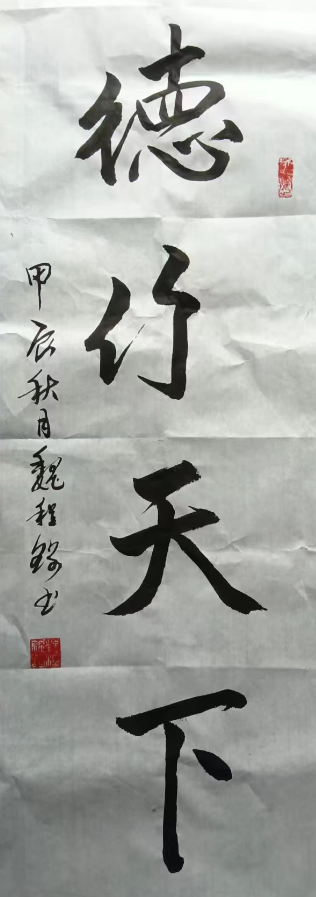 德行天下
甲辰秋月魏程锦书